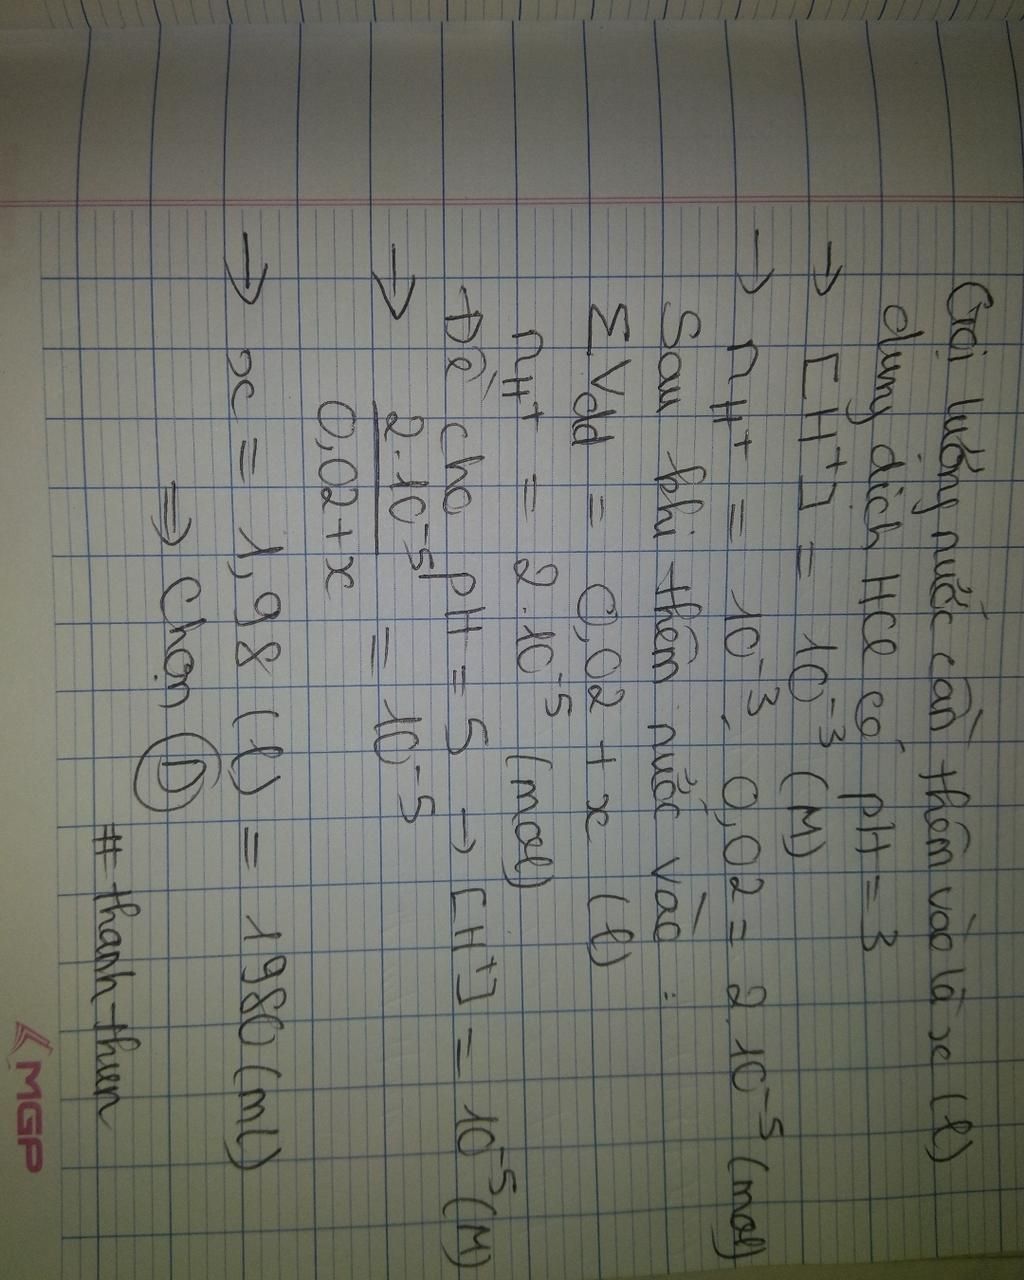 Gọi lượng nước cần thêm vào là x (l)
dung dịch HCl có pH = 3
→ [H⁺] = 10⁻³ (M)
→ nH⁺ = 10⁻³ . 0,02 = 2.10⁻⁵ (mol)
Sau khi thêm nước vào :
ΣVdd = 0,02 + x (l)
nH⁺ = 2.10⁻⁵ (mol)
Đề cho pH = 5 → [H⁺] = 10⁻⁵ (M)
→ 2.10⁻⁵ / 0,02+x = 10⁻⁵
→ x = 1,98 (l) = 1980 (ml)
⇒ Chọn D
# thanh-thuen
MGP